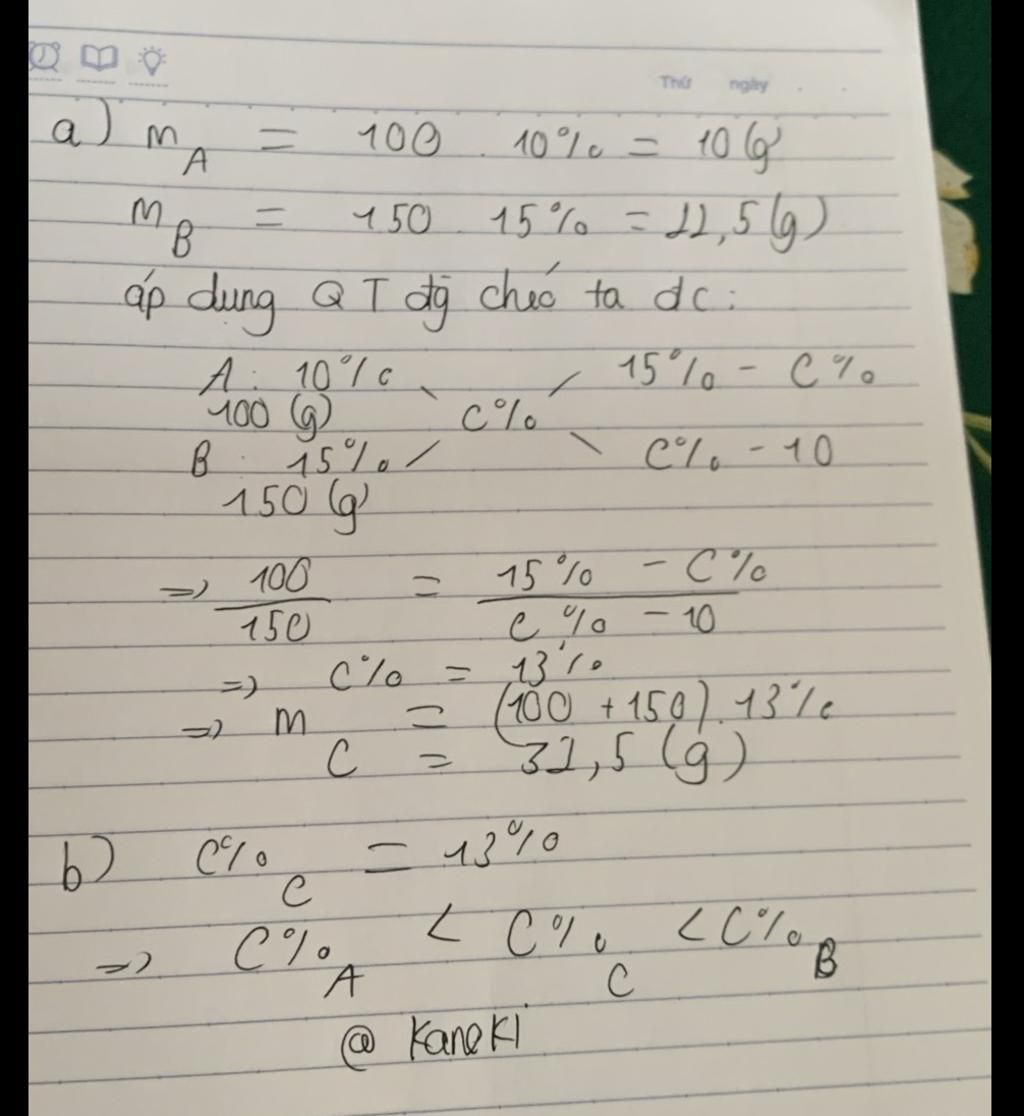 Thứ ngày . .
a) m_A = 100 . 10% = 10(g)
m_B = 150 . 15% = 22,5(g)
áp dụng QT đg chéo ta dc:
A : 10% 15% - C%
100 (g) C%
B : 15% C% - 10
150 (g)
=> 100/150 = (15% - C%)/(C% - 10)
=> C% = 13%
=> m = (100 + 150) . 13%
C = 32,5 (g)
b) C%_C = 13%
=> C%_A < C%_C < C%_B
@ Kaneki